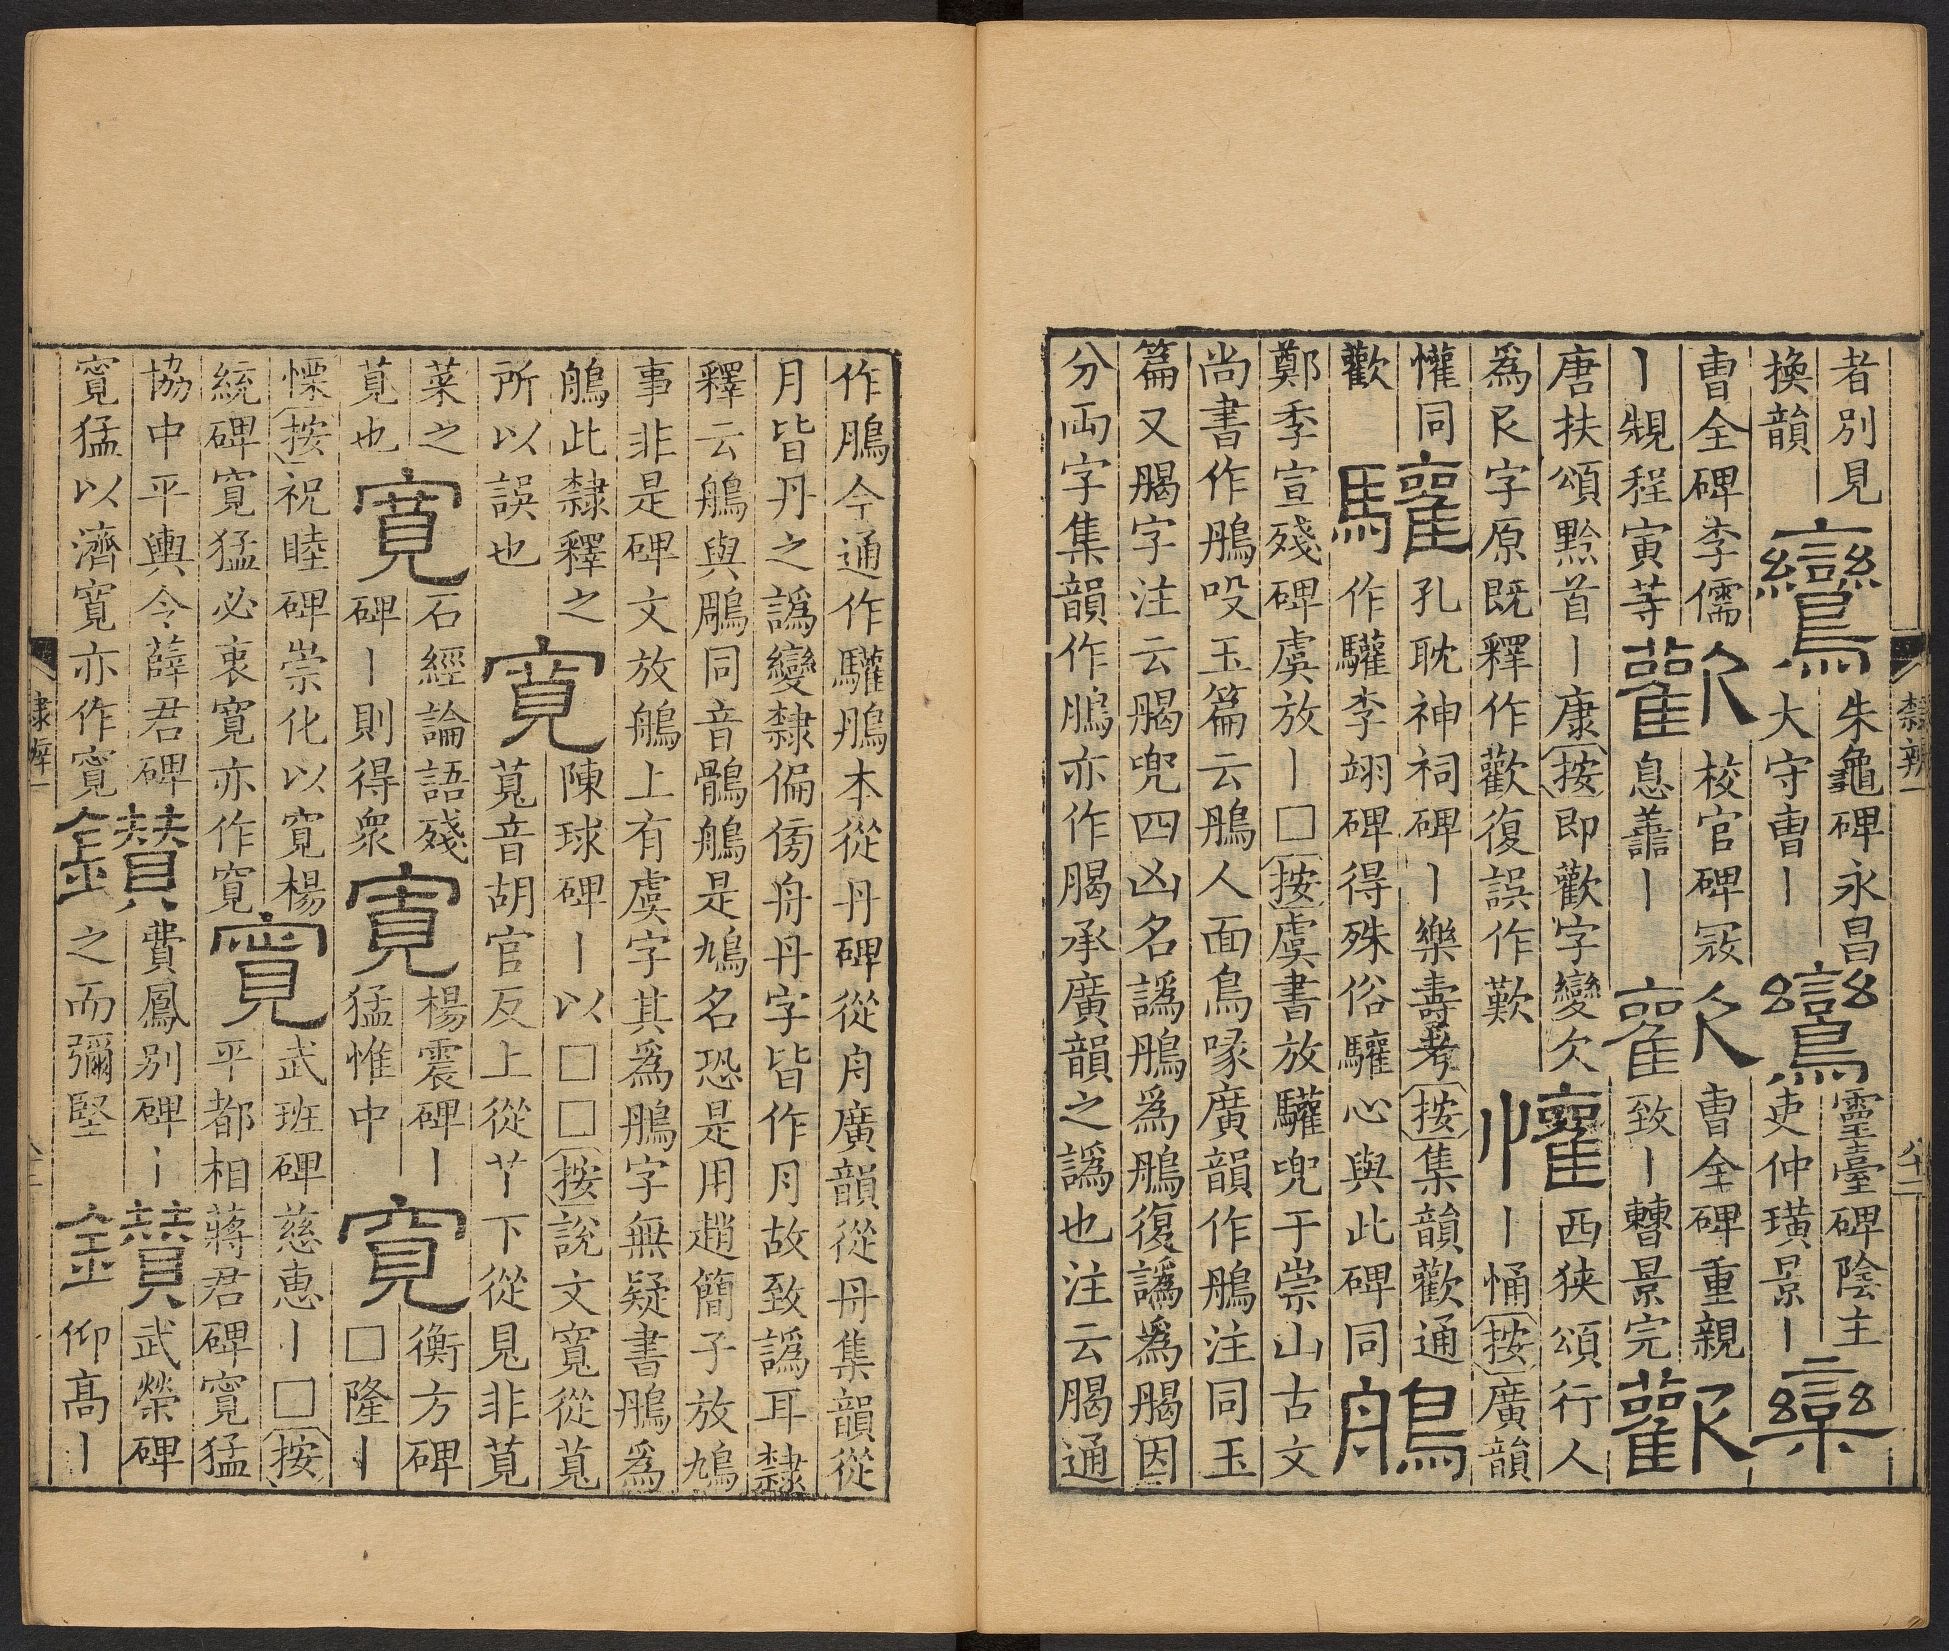 者別見
換韻
鸞
朱龜碑永昌
大守曹丨
鸞
靈臺碑陰主
吏仲璜景丨
欒
曹全碑李儒
丨䂓程寅等
歡
校官碑冣
息譱丨
歡
曹全碑重親
致丨曹景完
歡
唐扶頌黔首丨康按即歡字變欠
為𠂎字原既釋作歡復誤作歎
懽
西狹頌行人
丨悀按廣韻
懽同
歡
驩
孔耽神祠碑丨樂壽考按集韻歡通
作驩李翊碑得殊俗驩心與此碑同
鵃
鄭季宣殘碑虞放丨□按虞書放驩兜于崇山古文
尚書作鴅吺玉篇云鴅人面鳥喙廣韻作鵃注同玉
篇又䳚字注云䳚兜四凶名譌鴅為鵬復譌為䳚因
分兩字集韻作鵬亦作䳚承廣韻之譌也注云䳚通
隸辨一
作鵬今通作驩鴅本從丹碑從舟廣韻從丹集韻從
月皆丹之譌變隸偏傍舟丹字皆作月故致譌耳隸
釋云鵃與鵰同音鶻鵃是鳩名恐是用趙簡子放鳩
事非是碑文放鵃上有虞字其為鴅字無疑書鴅為
鵃此隸釋之
所以誤也
寬
陳球碑丨以□□按說文寬從萈
萈音胡官反上從丫下從見非莧
菜之
莧也
寬
石經論語殘
碑丨則得衆
寬
楊震碑丨
猛惟中
寬
衡方碑
□隆丨
慄按祝睦碑崇化以寬楊
統碑寬猛必衷寬亦作寬
寬
武班碑慈惠丨□按
平都相蔣君碑寬猛
協中平輿令薛君碑
寬猛以濟寬亦作寬
鑽
費鳳別碑丨
之而彌堅
鑽
武榮碑
仰高丨